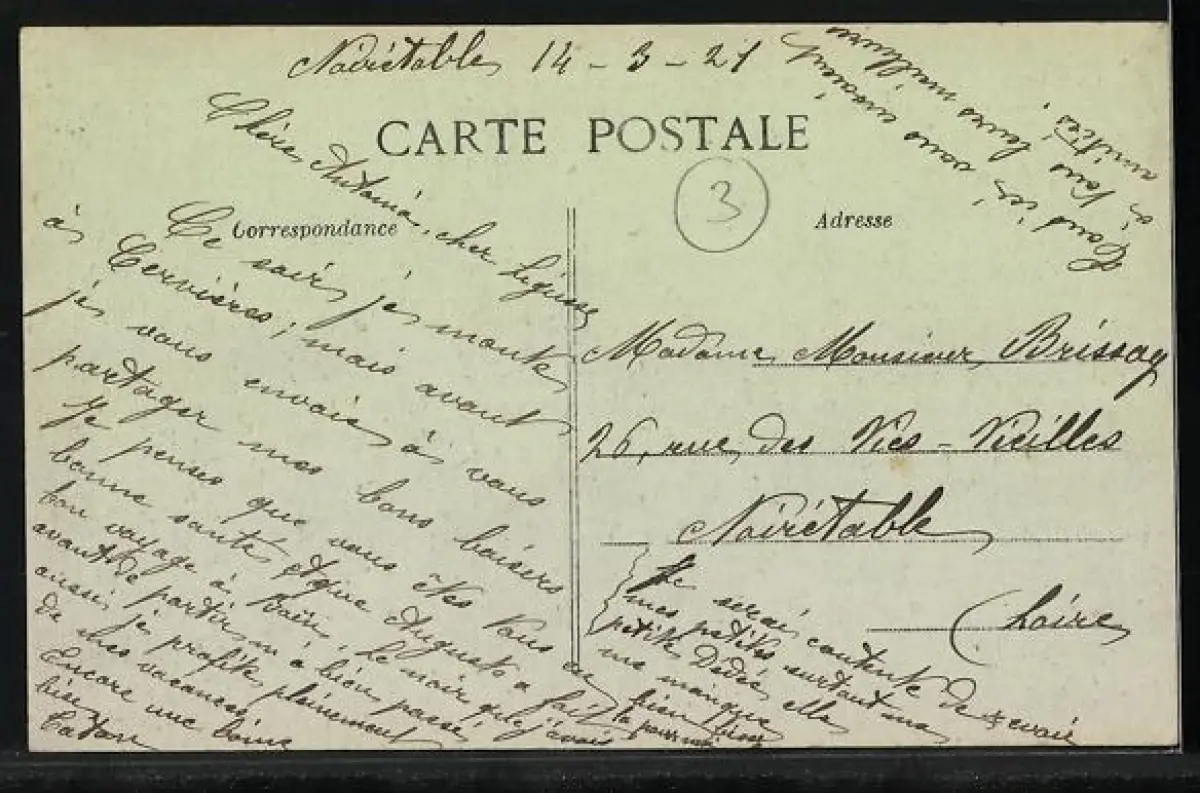 Noirétable 14-3-21
CARTE POSTALE
3
Correspondance
Adresse
Chère Antonia, cher
Ce soir, je monte
à Cervières; mais avant
je vous envoie à vous
partager mes bons baisers
Je pense que vous êtes tous en
bonne santé, et que Auguste a fait
bon voyage à Paris. Le noir que j'avais
avant de partir m'a bien passé,
aussi je profite pleinement
de mes vacances
Encore une bonne
bise
Caton
Tous ici vous envoient
à tous leurs meilleures
amitiés.
Madame Monsieur Brissay
26, rue des Vies-Vieilles
Noirétable
(Loire)
Je serai contente de revoir
mes petites surtout ma
petite Dédée, elle
me manque
bien